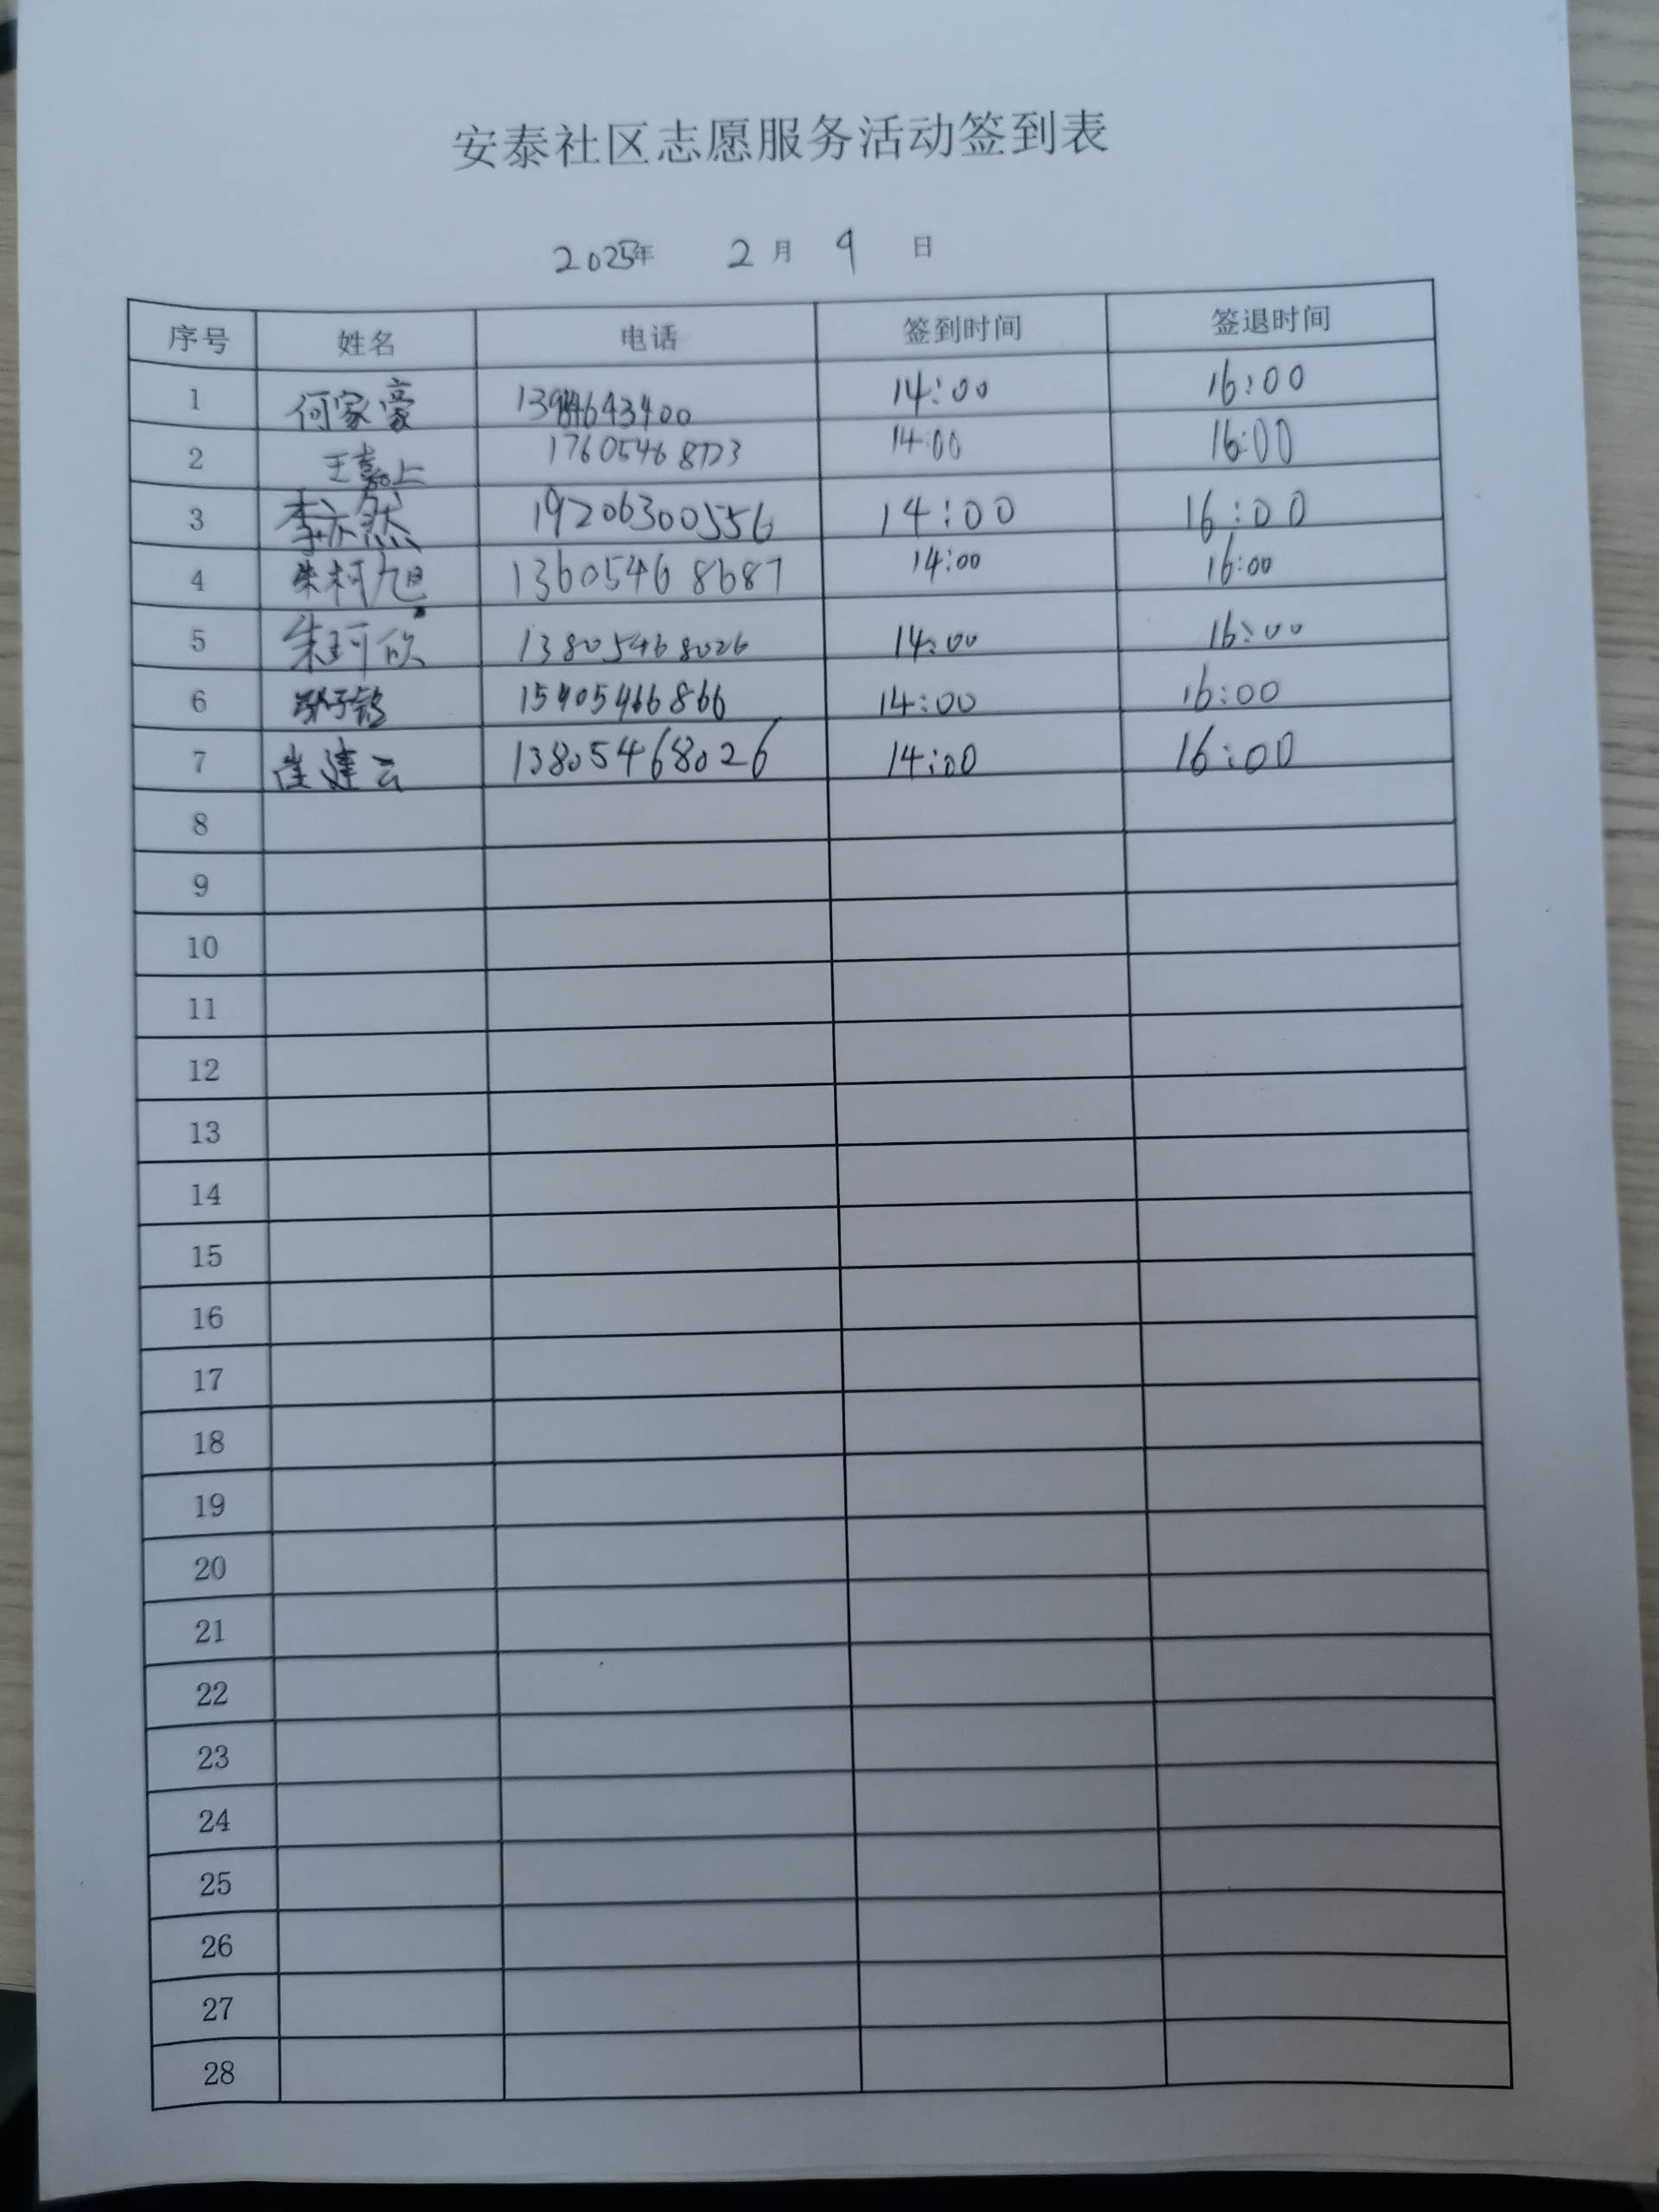 安泰社区志愿服务活动签到表
2025年 2 月 9 日
序号 姓名 电话 签到时间 签退时间
1 何家豪 14:00 16:00
2 17605468723 14:00 16:00
3 李亦然 19206300556 14:00 16:00
4 朱柯旭 13605468687 14:00 16:00
5 朱珂欣 13805468026 14:00 16:00
6 14:00 16:00
7 崔建云 13805468026 14:00 16:00
8
9
10
11
12
13
14
15
16
17
18
19
20
21
22
23
24
25
26
27
28